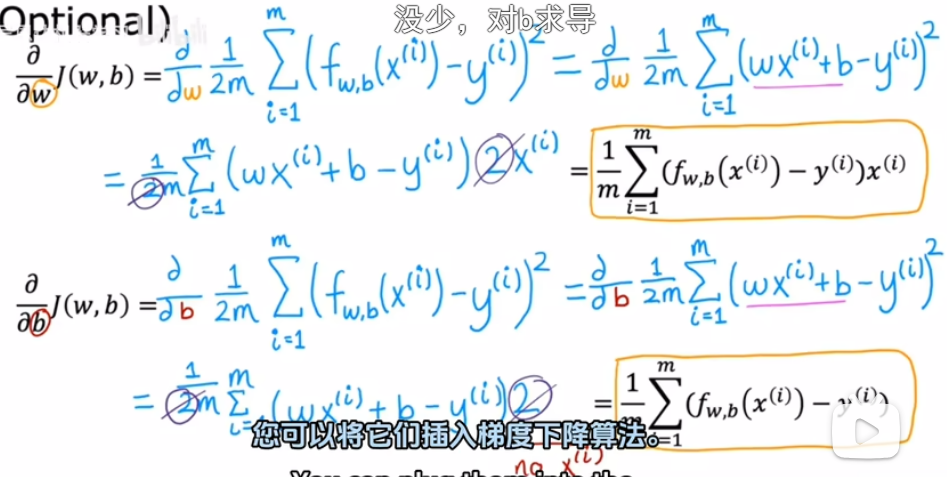 Optional)
没少，对b求导
∂/∂w J(w,b) = ∂/∂w 1/2m ∑_{i=1}^{m} (f_{w,b}(x^{(i)}) − y^{(i)})^2 = ∂/∂w 1/2m ∑_{i=1}^{m} (wx^{(i)} + b − y^{(i)})^2
= 1/2m ∑_{i=1}^{m} (wx^{(i)} + b − y^{(i)}) 2x^{(i)} = 1/m ∑_{i=1}^{m} (f_{w,b}(x^{(i)}) − y^{(i)})x^{(i)}
∂/∂b J(w,b) = ∂/∂b 1/2m ∑_{i=1}^{m} (f_{w,b}(x^{(i)}) − y^{(i)})^2 = ∂/∂b 1/2m ∑_{i=1}^{m} (wx^{(i)} + b − y^{(i)})^2
= 1/2m ∑_{i=}^{m} (wx^{(i)} + b − y^{(i)}) 2 = 1/m ∑_{i=1}^{m} (f_{w,b}(x^{(i)}) − y^{(i)})
您可以将它们插入梯度下降算法。
no x^{(i)}
You can plug them into the